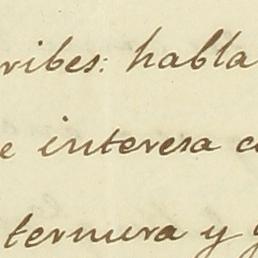 ribes: habla
e interesa c
ternura y